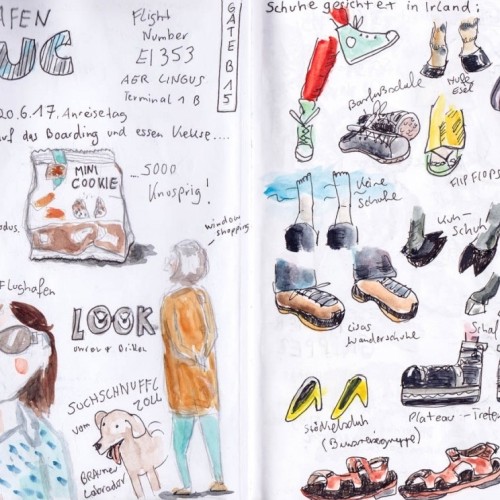 AFEN
UC
Flight
Number
EI353
AER LINGUS
Terminal 1 B
GATE B15
20.6.17. Anreisetag
uf das Boarding und essen Kekse....
MINI
COOKIE
....5000
Knusprig!
odus.
window
shopping
Flughafen
LOOK
SUCHSCHNUFFL
vom ZOLL
BRAUNER
Labrador
Schuhe gesichtet in Irland:
Hufe
Esel
FLIP FLOPS
Keine
Schuhe
Kuh-
Schuh
Lisas
Wanderschuhe
Schaf
Plateau-Treter
Stöckelschuh